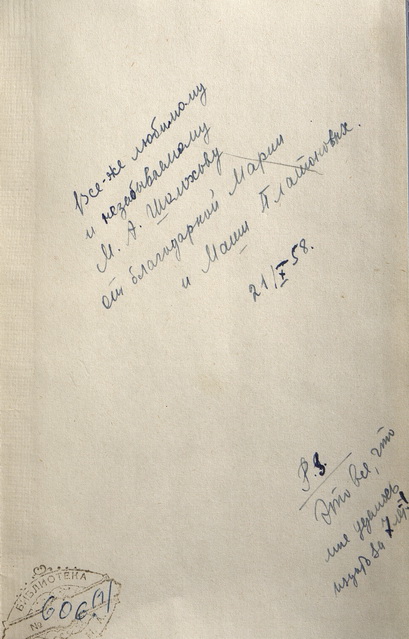 Все-же любимому
и незабываемому
М. А. Шолохову
от благодарной Марии
и Маши Платоновых.
21/X 58.
P.S.
Это все, что
мне удалось
за 7 лет!
БИБЛИОТЕКА
№ 606